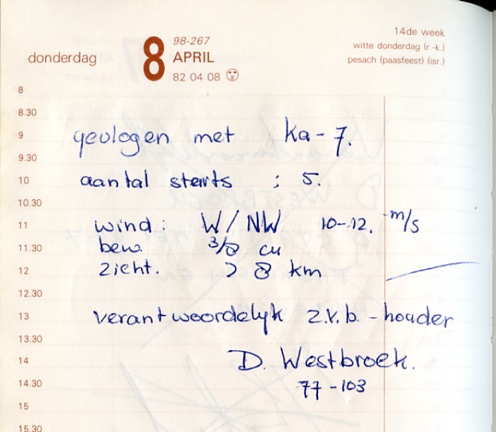 14de week
witte donderdag (r.-k.)
pesach (paasfeest) (isr.)
donderdag
8
98-267
APRIL
82 04 08
8
8.30
9
gevlogen met Ka-7.
9.30
10
aantal starts : 5.
10.30
11
wind: W/NW 10-12. m/s
11.30
bew. 3/8 cu
12
zicht. > 8 km
12.30
13
verantwoordelyk z.v.b.-houder
13.30
14
D. Westbroek.
14.30
77-103
15
15.30